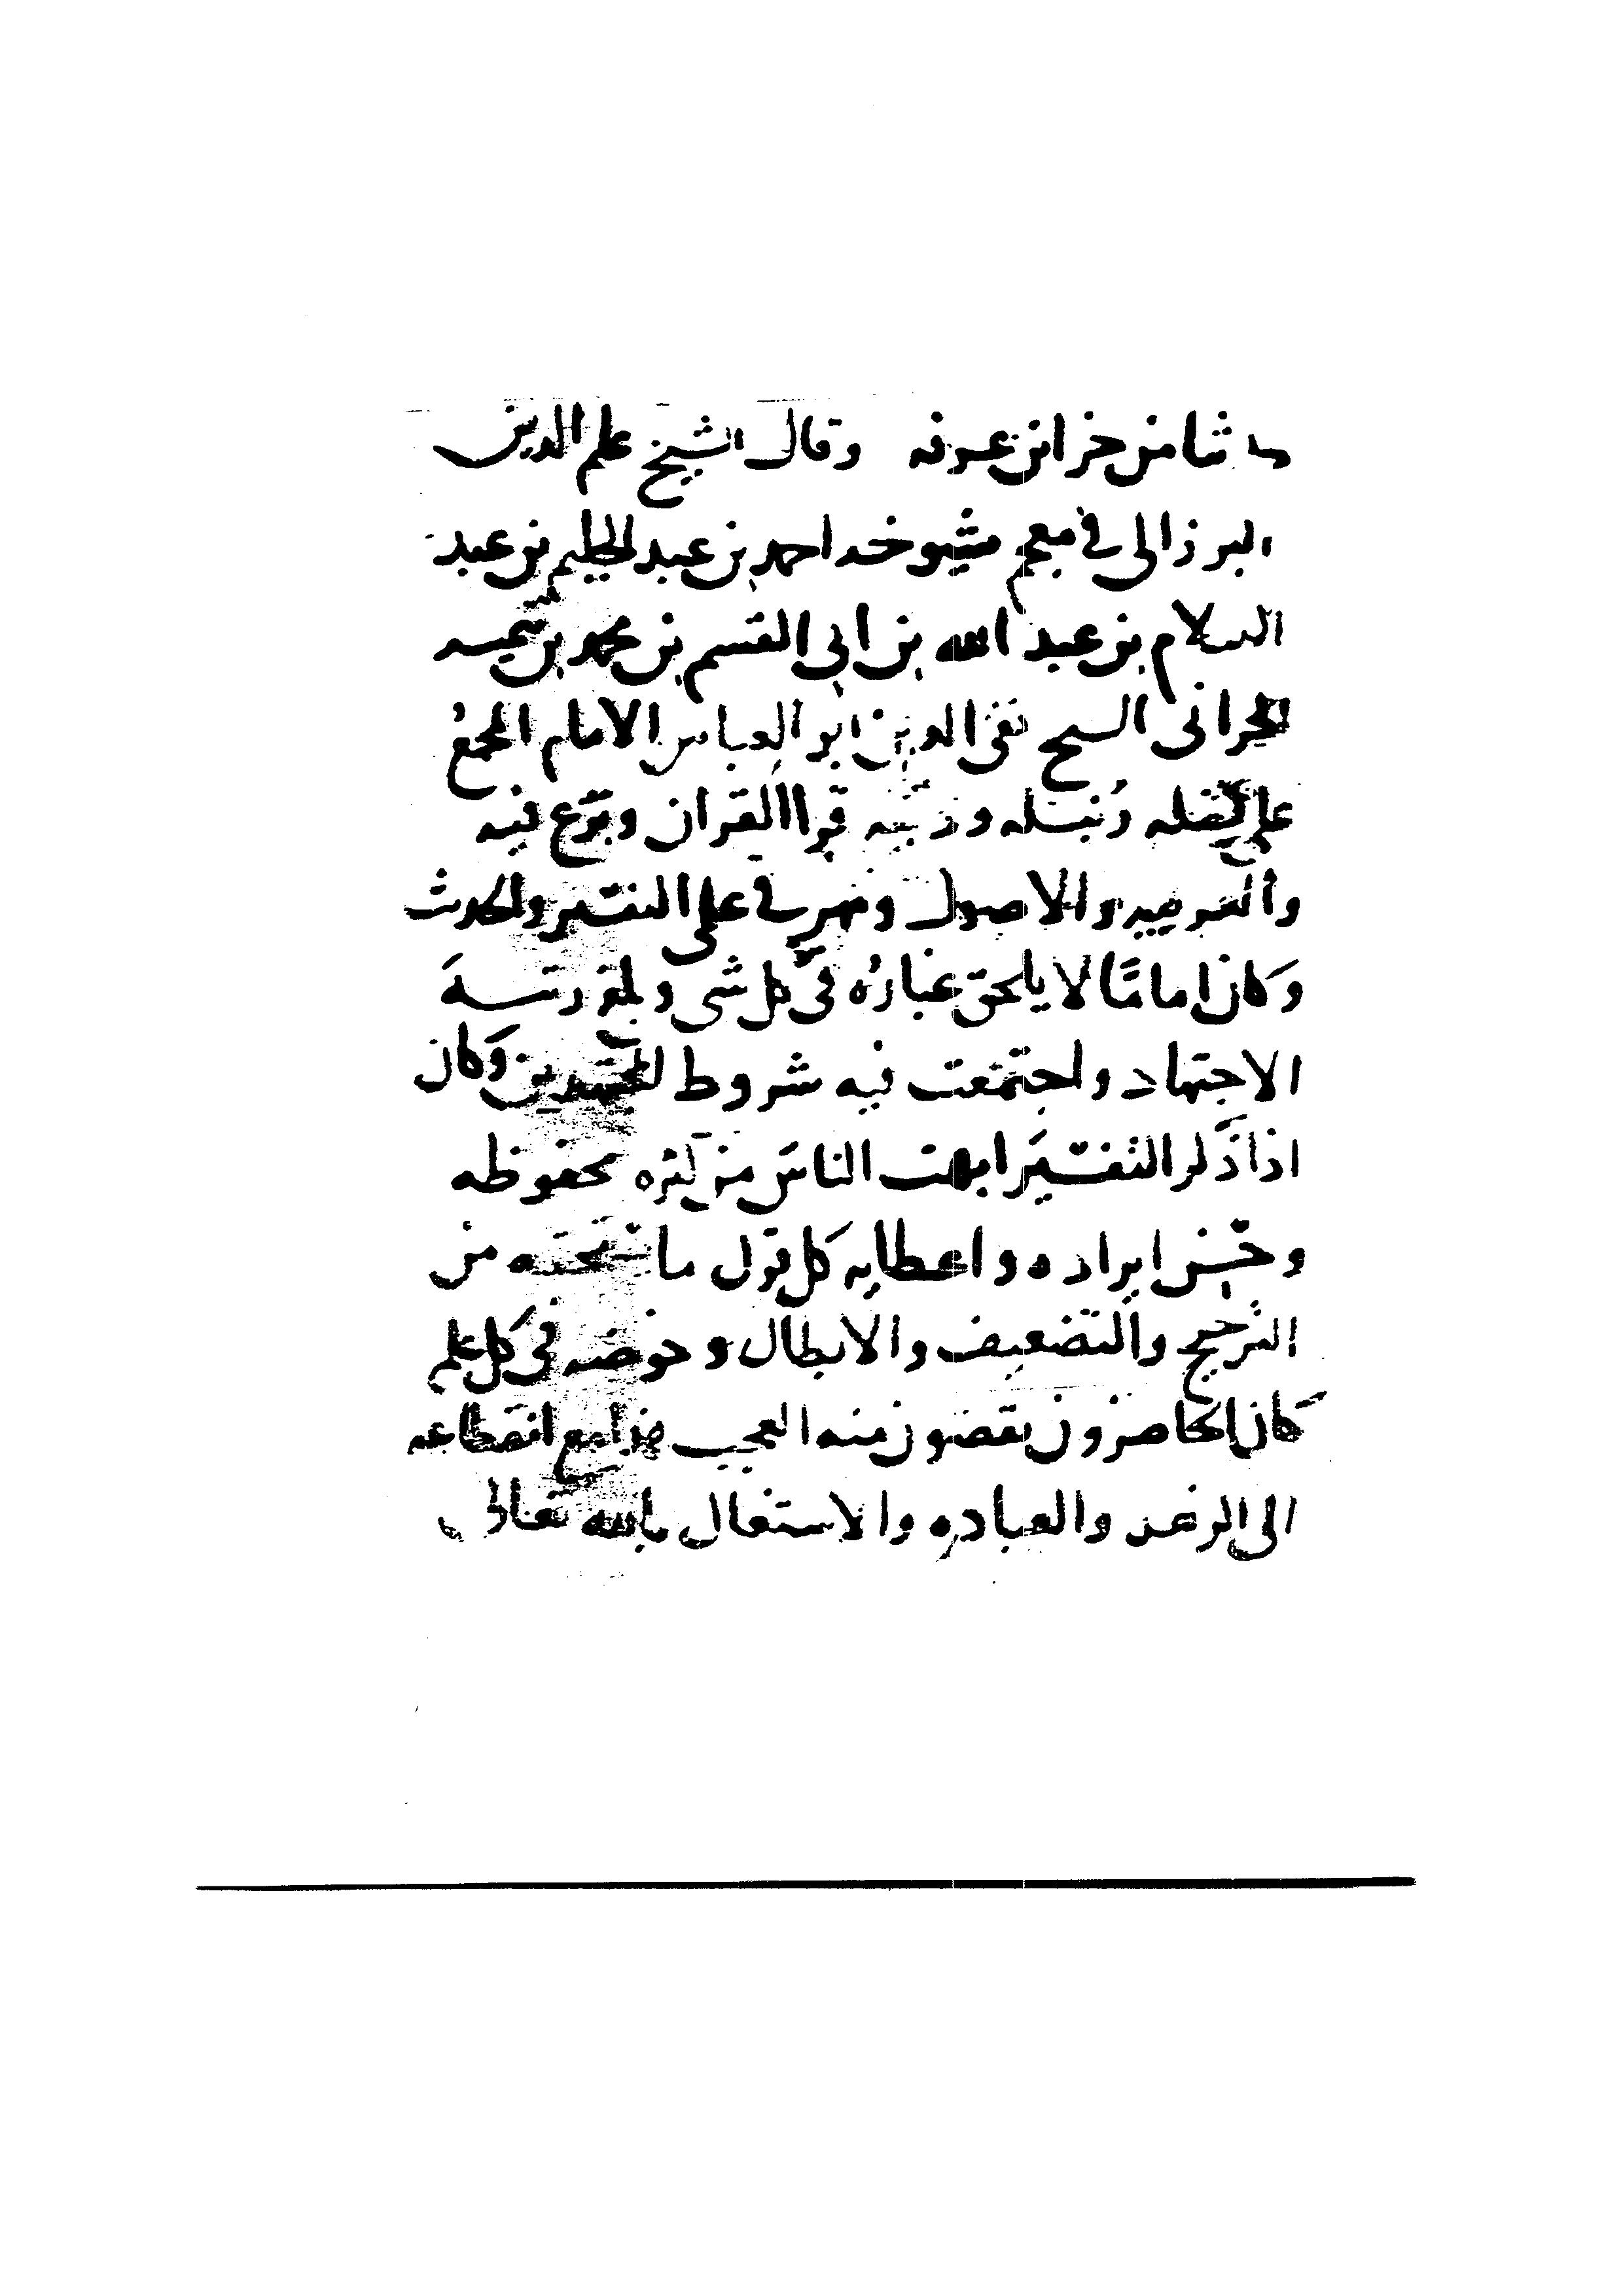 ما شا من خزاين عرفه وقال الشيخ علم الدين
البرزالى في معجم شيوخه احمد بن عبد الحليم بن عبد
السلام بن عبد الله بن ابي القسم بن محمد بن تيميه
الحرانى الشيخ تقى الدين ابو العباس الامام المجمع
على فضله ونبله ودينه قرا القران وبرع فيه
والعربيه والاصول ومهر في علمى التفسير والحديث
وكان اماما لا يلحق غباره في كل شى وبلغ رتبه
الاجتهاد واجتمعت فيه شروط المجتهدين وكان
اذا ذكر التفسير ابهت الناس من كثره محفوظه
وحسن ايراده واعطايه كل قول ما يستحقه من
الترجيح والتضعيف والابطال وخوضه في كل علم
كان الحاضرون يقضون منه العجب هذا مع انقطاعه
الى الزهد والعباده والاشتغال بالله تعالى